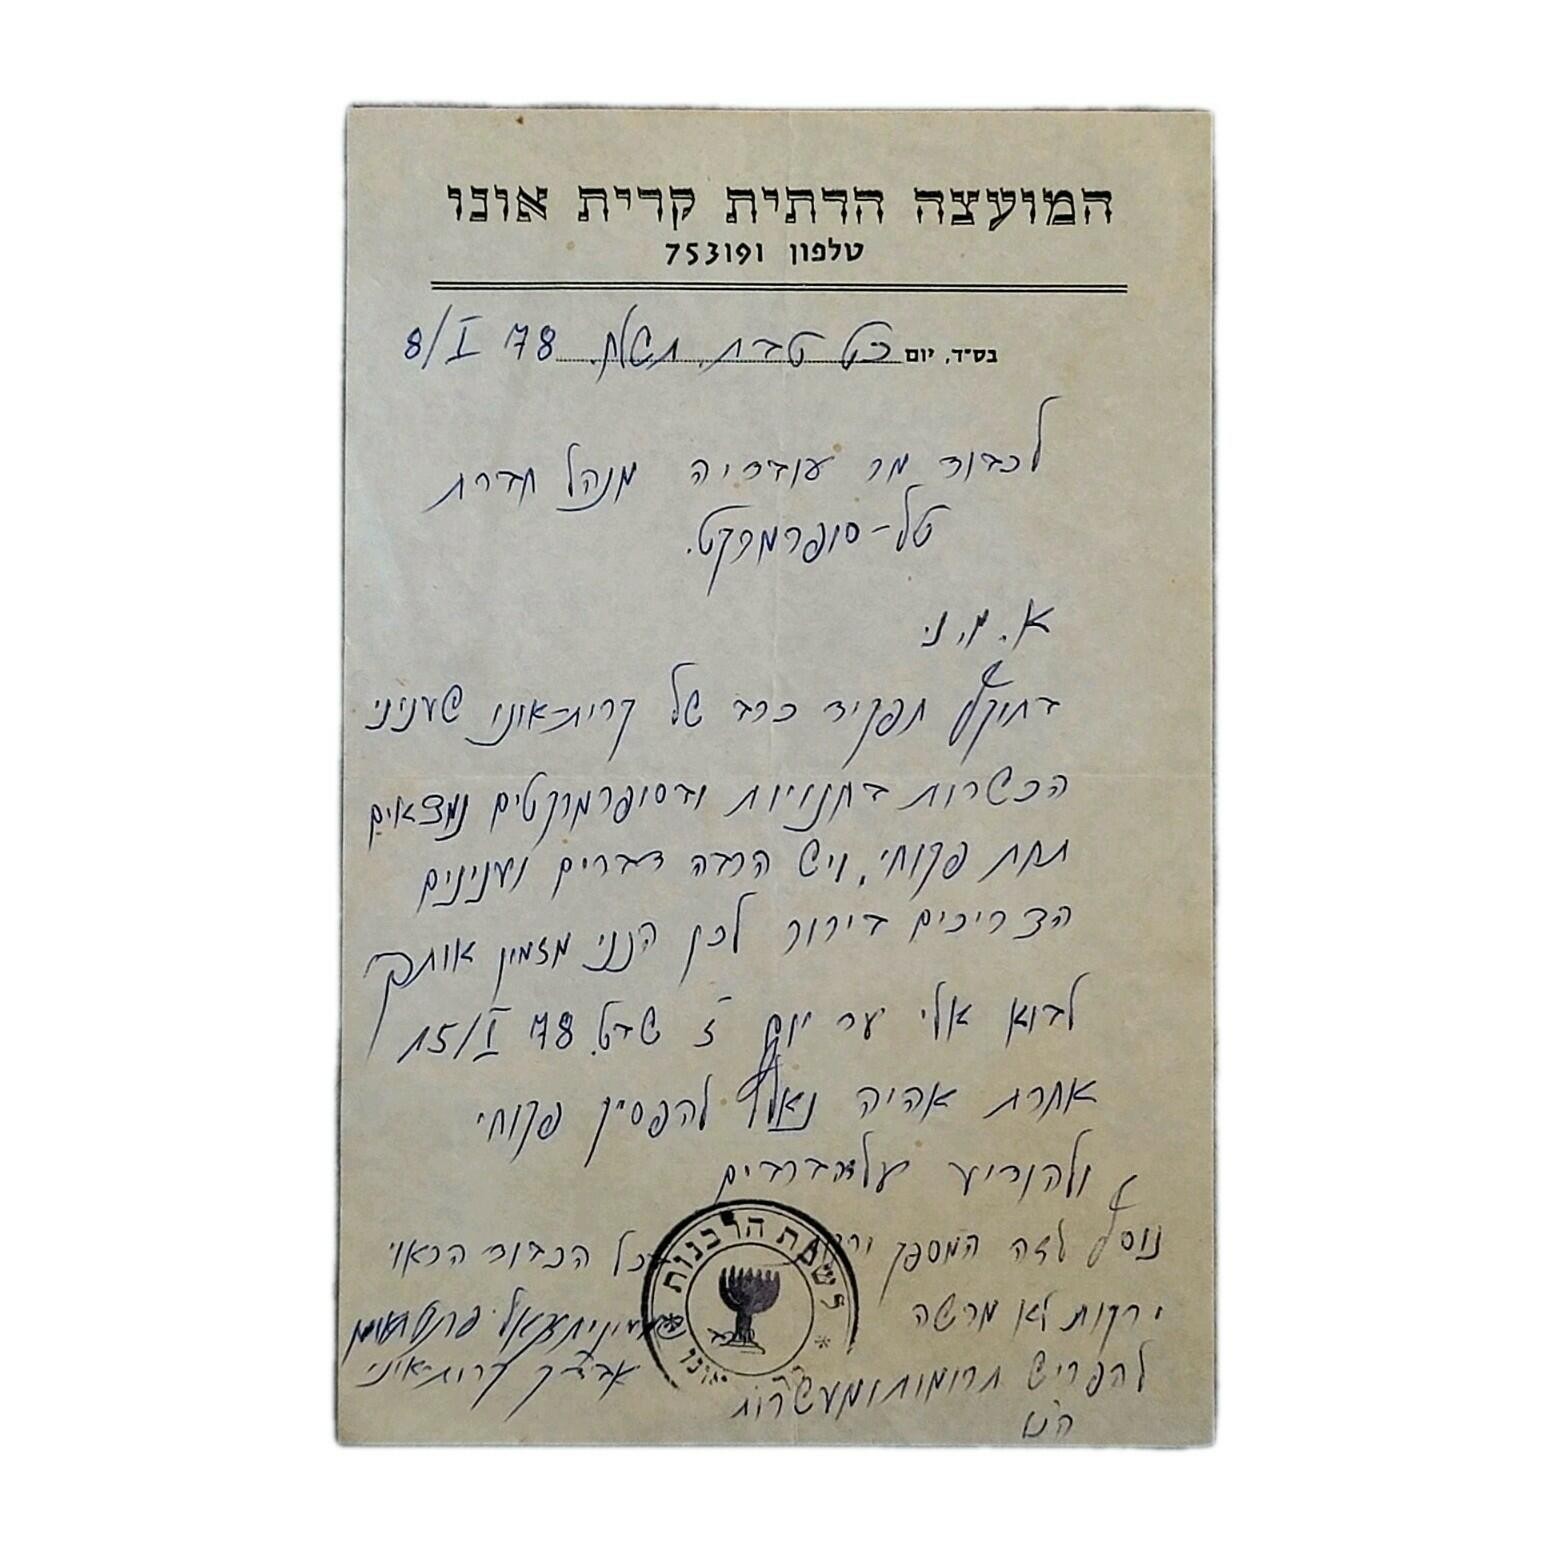 המועצה הדתית קרית אונו
טלפון 753191
בס"ד, יום כט טבת תשלח. 78 8/I
לכבוד מר עובדיה מנהל חברת
טל-סופרמרקט.
א. מ. נ.
בתוקף תפקיד כרב של קרית-אונו שעניני
הכשרות בחנויות ובסופרמרקטים נמצאים
תחת פקוחי, ויש הרבה דברים וענינים
הצריכים בירור לכן הנני מזמין אותך
לבוא אלי עד יום ז שבט. 78 15/I
אחרת אהיה נאלץ להפסיק פקוחי
ולהודיע על הדברים
נוסף לזה המספק
ירקות לא מרשה
להפריש תרומות ומעשרות
הנ"ל
בכל הכבוד הראוי
אב"ד ק קרית-אונו
לשכת הרבנות
אונו